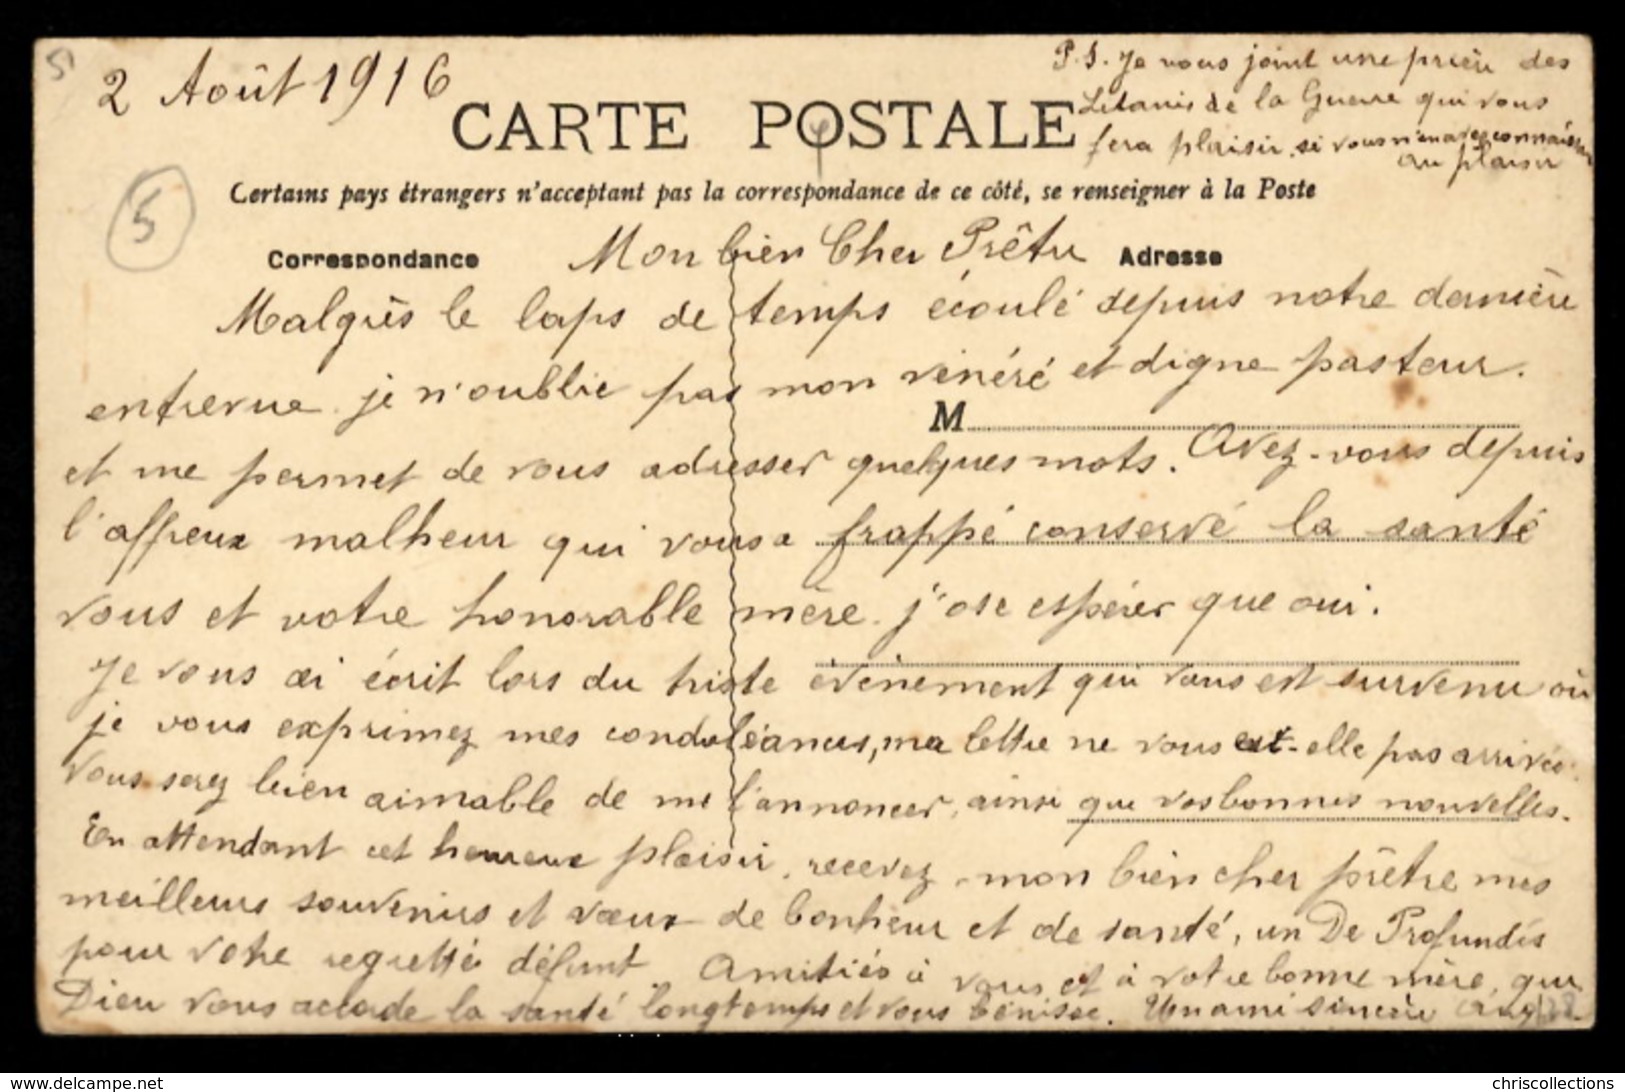 5
2 Août 1916
P.S. Je vous joint une prière des
Litanies de la Guerre qui vous
fera plaisir, si vous n'en avez connaissance
au plaisir
CARTE POSTALE
Certains pays étrangers n'acceptant pas la correspondance de ce côté, se renseigner à la Poste
5
Correspondance
Mon bien Cher Prêtre
Adresse
Malgrès le laps de temps écoulé depuis notre dernière
entrevue je n'oublie pas mon vénéré et digne pasteur.
M
et me permet de vous adresser quelques mots. Avez-vous depuis
l'affreux malheur qui vous a frappé conservé la santé
vous et votre honorable mère. j'ose espérer que oui.
Je vous ai écrit lors du triste évènement qui vous est survenu où
je vous exprimez mes condoléances, ma lettre ne vous est-elle pas arrivée
Vous serez bien aimable de me l'annoncer, ainsi que vos bonnes nouvelles.
En attendant cet heureux plaisir, recevez, mon bien cher prêtre mes
meilleurs souvenirs et vœux de bonheur et de santé, un De Profundis
pour votre regretté défunt. Amitiés à vous et à votre bonne mère, que
Dieu vous accorde la santé longtemps et vous bénisse. Un ami sincère
chriscollections
www.delcampe.net